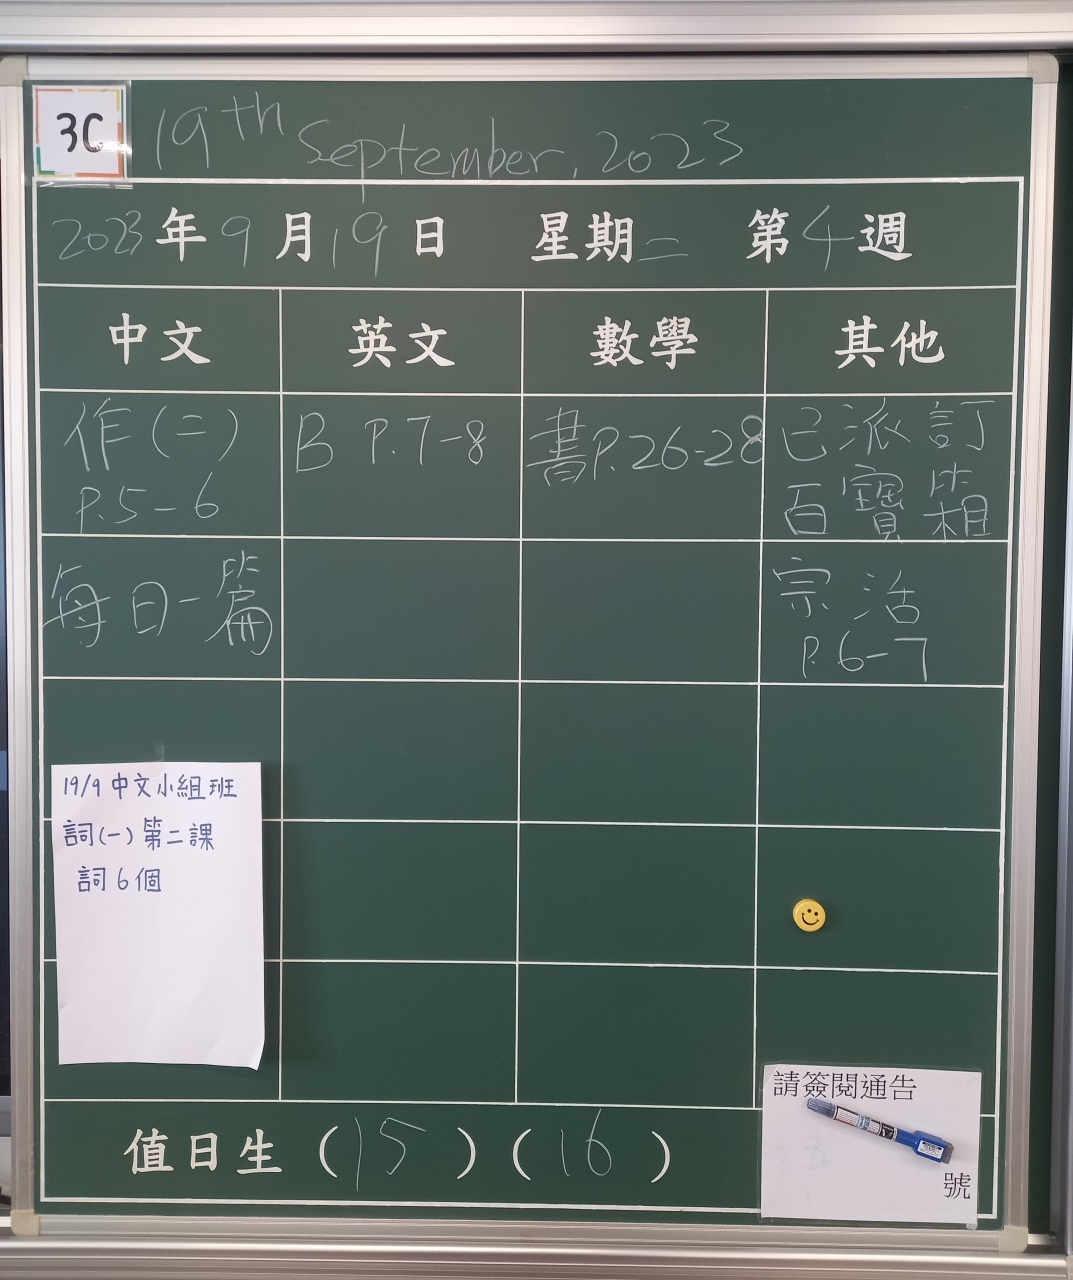 3C
19th September, 2023
2023年9月19日 星期二 第4週
中文 英文 數學 其他
作(二) P.5-6
B P.7-8
書P.26-28
已派訂百寶箱
每日一篇
宗活 P.6-7
19/9 中文小組班
詞(一)第二課
詞6個
請簽閱通告
號
值日生(15)(16)